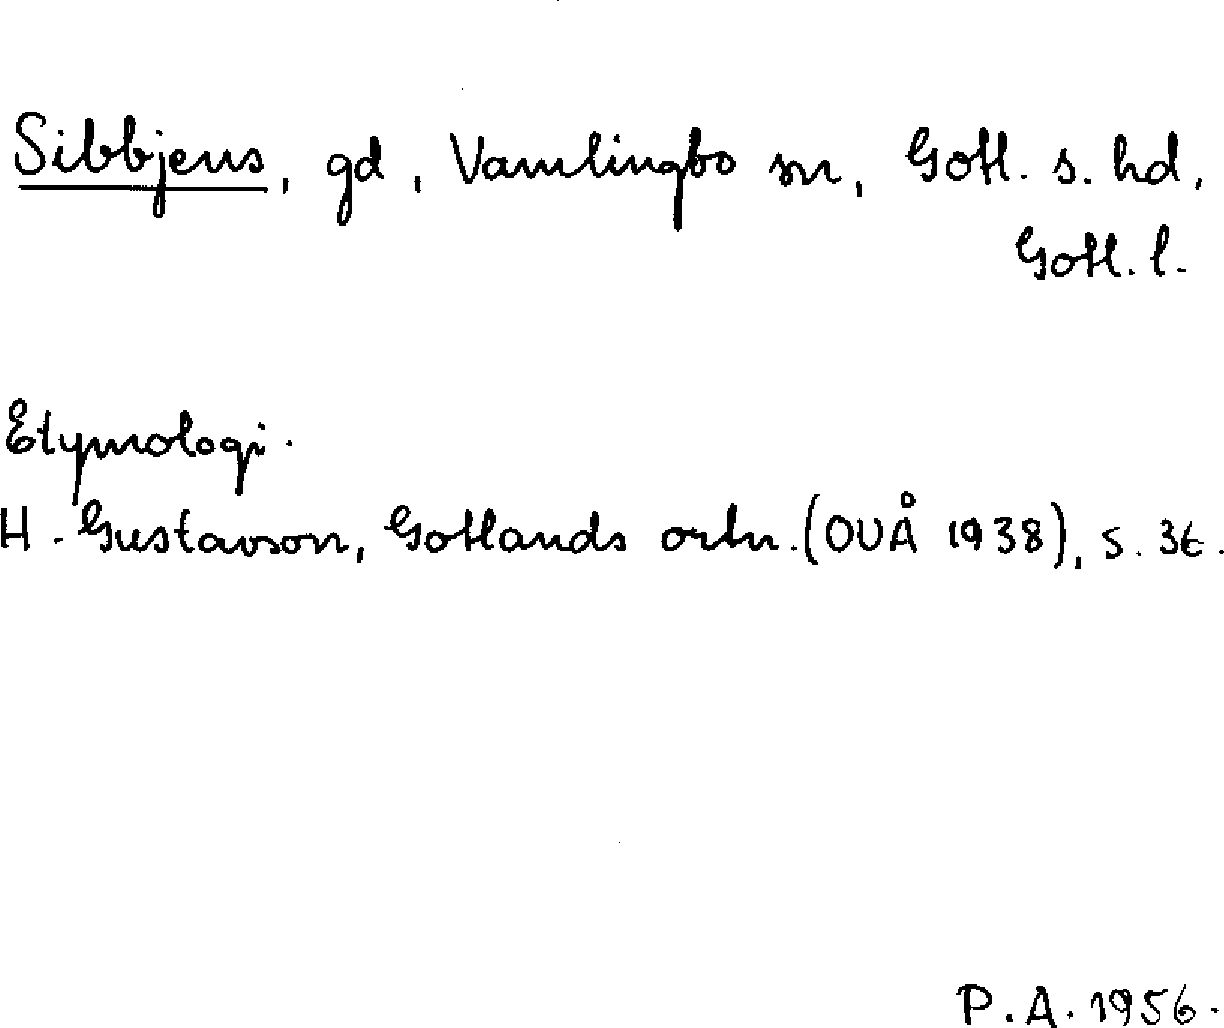 Sibbjens, gd, Vamlingbo sn, Gotl. s. hd,
Gotl. l.
Etymologi.
H. Gustavson, Gotlands ortn. (OUÅ 1938), s. 36.
P.A. 1956.